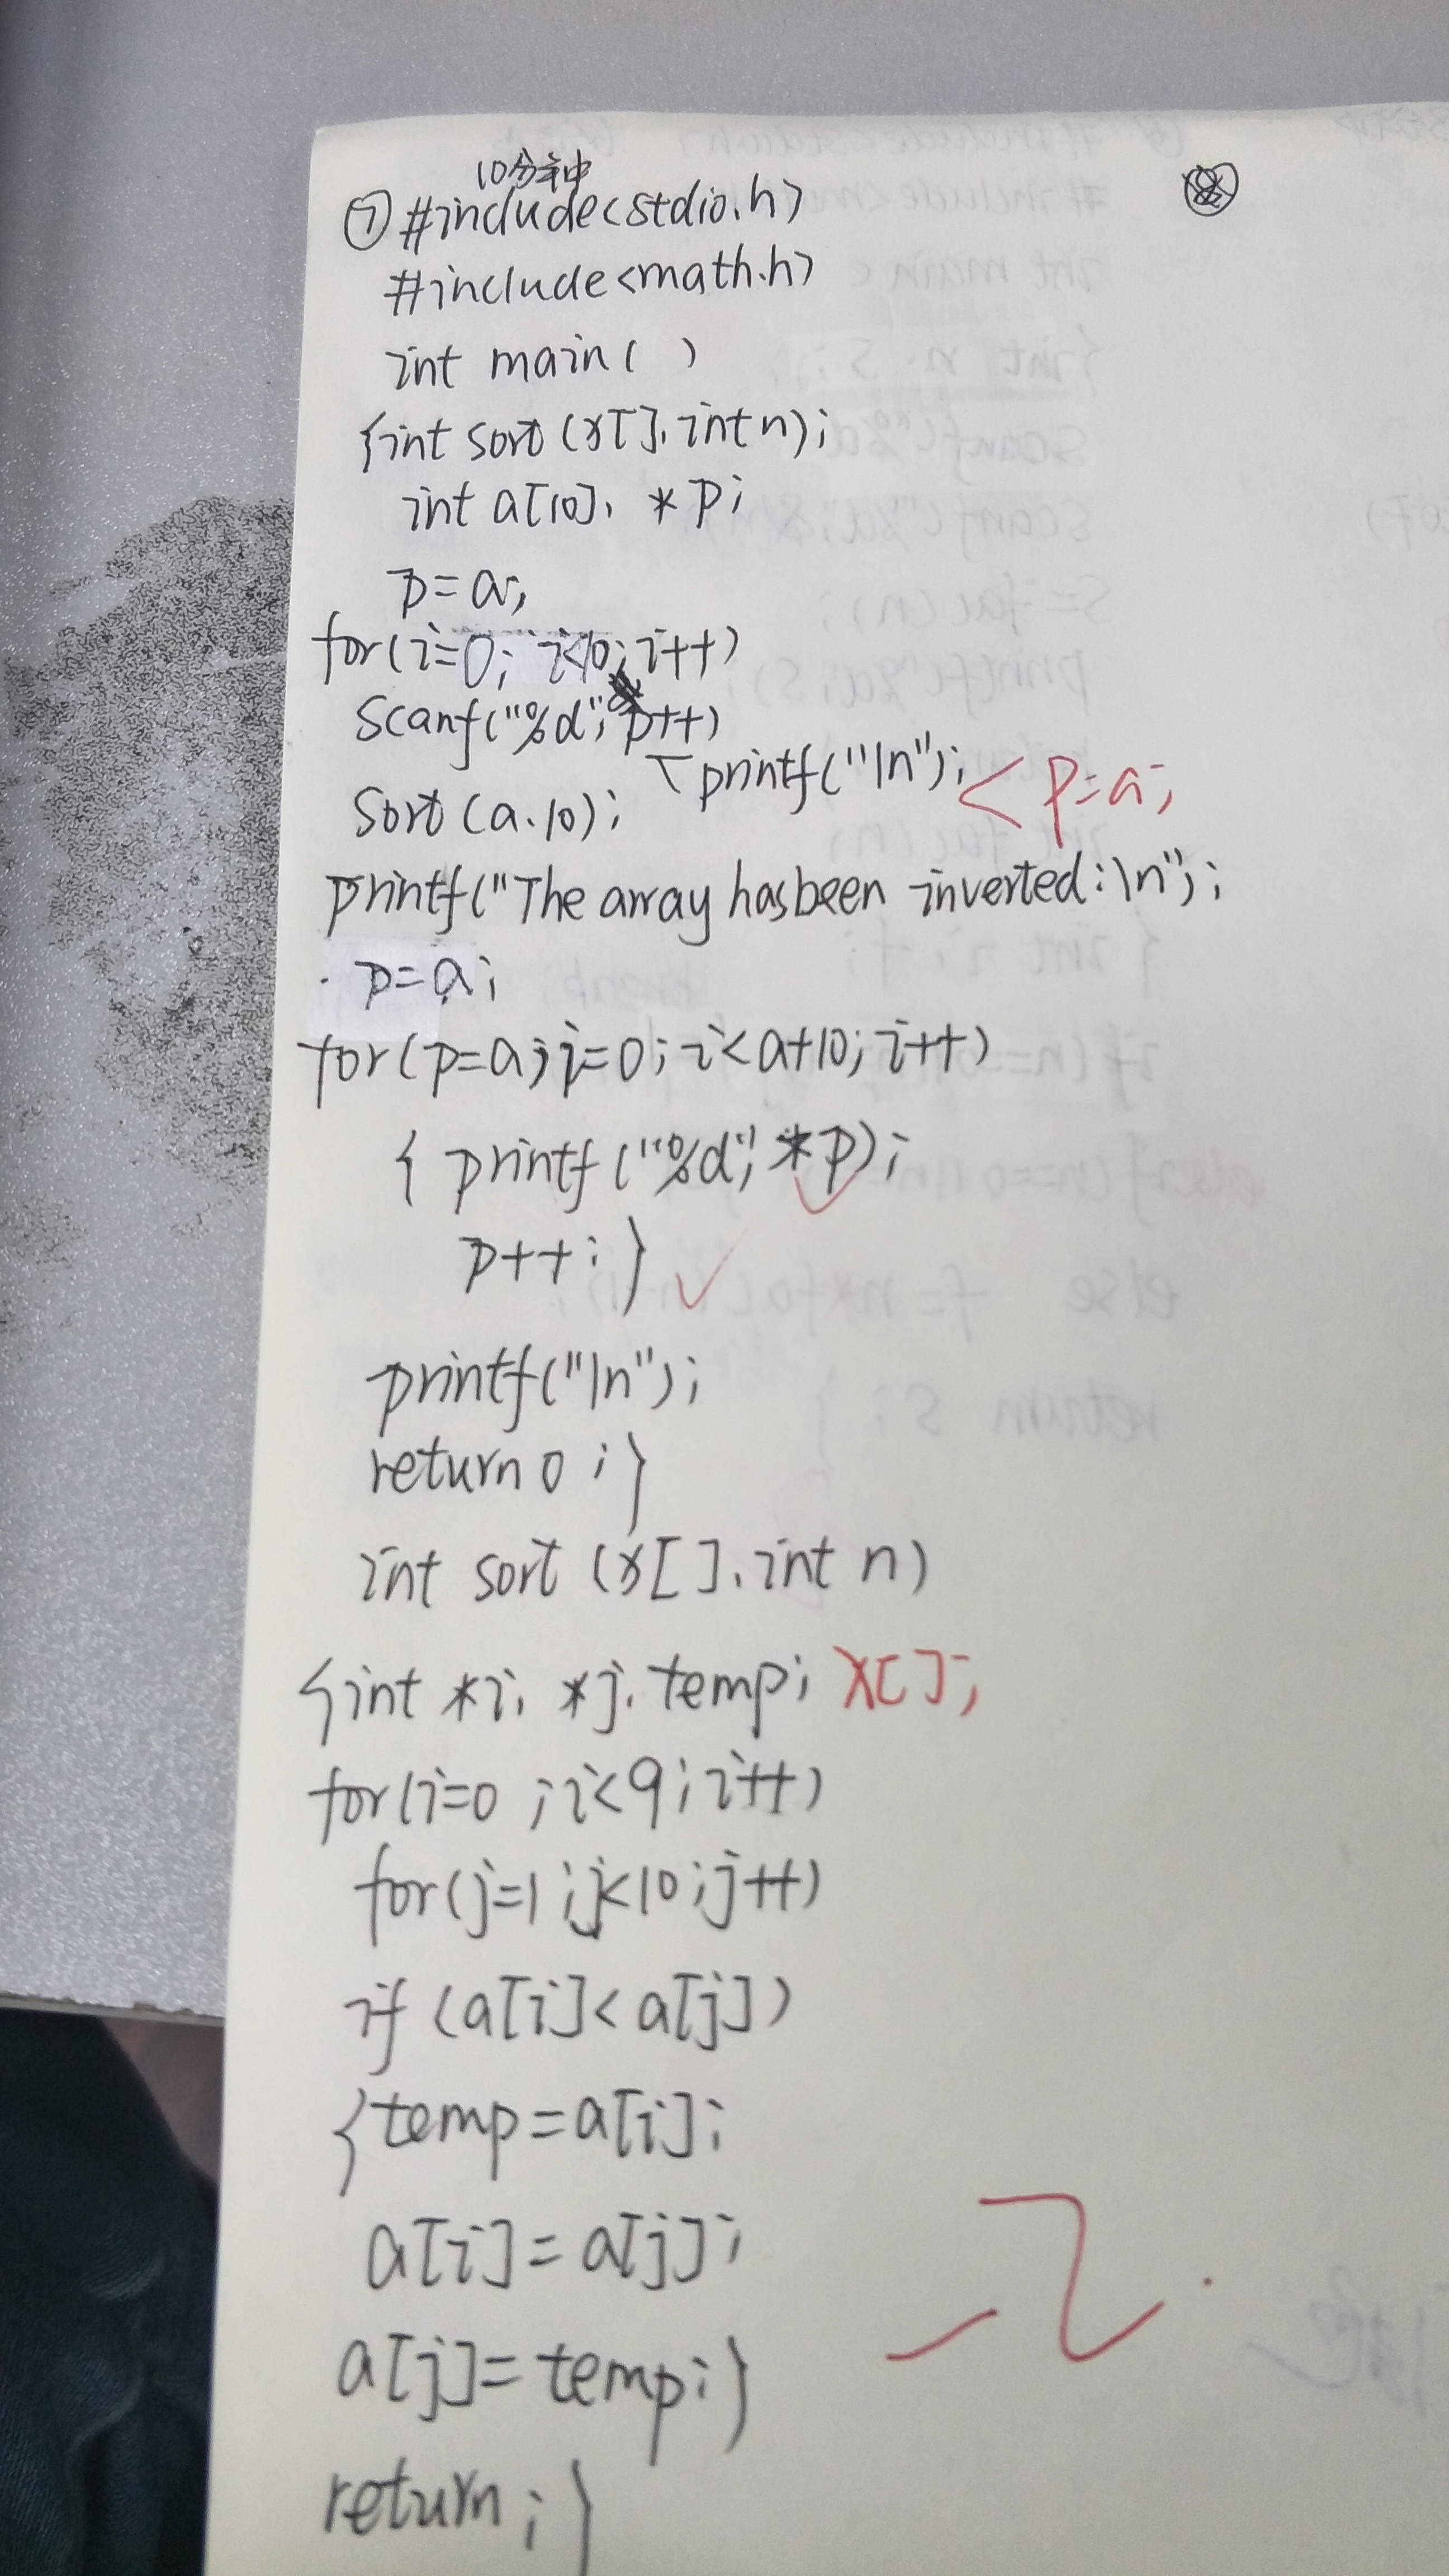 10分钟
⑦ #include<stdio.h>
#include<math.h>
int main( )
{int sort (x[], int n);
int a[10], *p;
p=a;
for(i=0; i<10; i++)
scanf("%d", p++)
printf("\n"); < p=a;
sort(a,10);
printf("The array has been inverted:\n");
p=a;
for(p=a; i=0; i<a+10; i++)
{ printf("%d", *p);
p++; }
printf("\n");
return 0 ; }
int sort (x[], int n)
{int *i, *j, temp; x[];
for(i=0 ; i<9 ; i++)
for(j=1 ; j<10 ; j++)
if (a[i]< a[j])
{temp=a[i];
a[i]=a[j];
a[j]=temp; }
return ; }